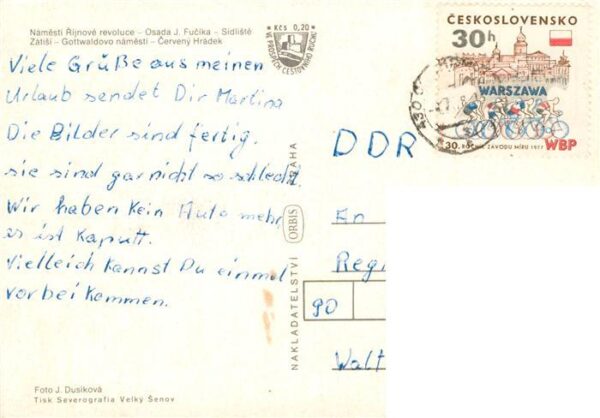 Náměstí Říjnové revoluce – Osada J. Fučíka – Sídliště
Zátiší – Gottwaldovo náměstí – Červený Hrádek
* Kčs 0,20 *
VE PROSPĚCH CESTOVNÍHO RUCHU
Viele Grüße aus meinen
Urlaub sendet Dir Martina
Die Bilder sind fertig.
sie sind gar nicht so schlecht.
Wir haben Kein Auto mehr,
es ist Kaputt.
Vielleich kannst Du einmal
vorbei Kommen.
Foto J. Dusíková
Tisk Severografia Velký Šenov
NAKLADATELSTVÍ ORBIS PRAHA
ČESKOSLOVENSKO
30h
WARSZAWA
30. ROČNÍK ZÁVODU MÍRU 1977 WBP
430 0
DDR
An
Reg
90
Walt